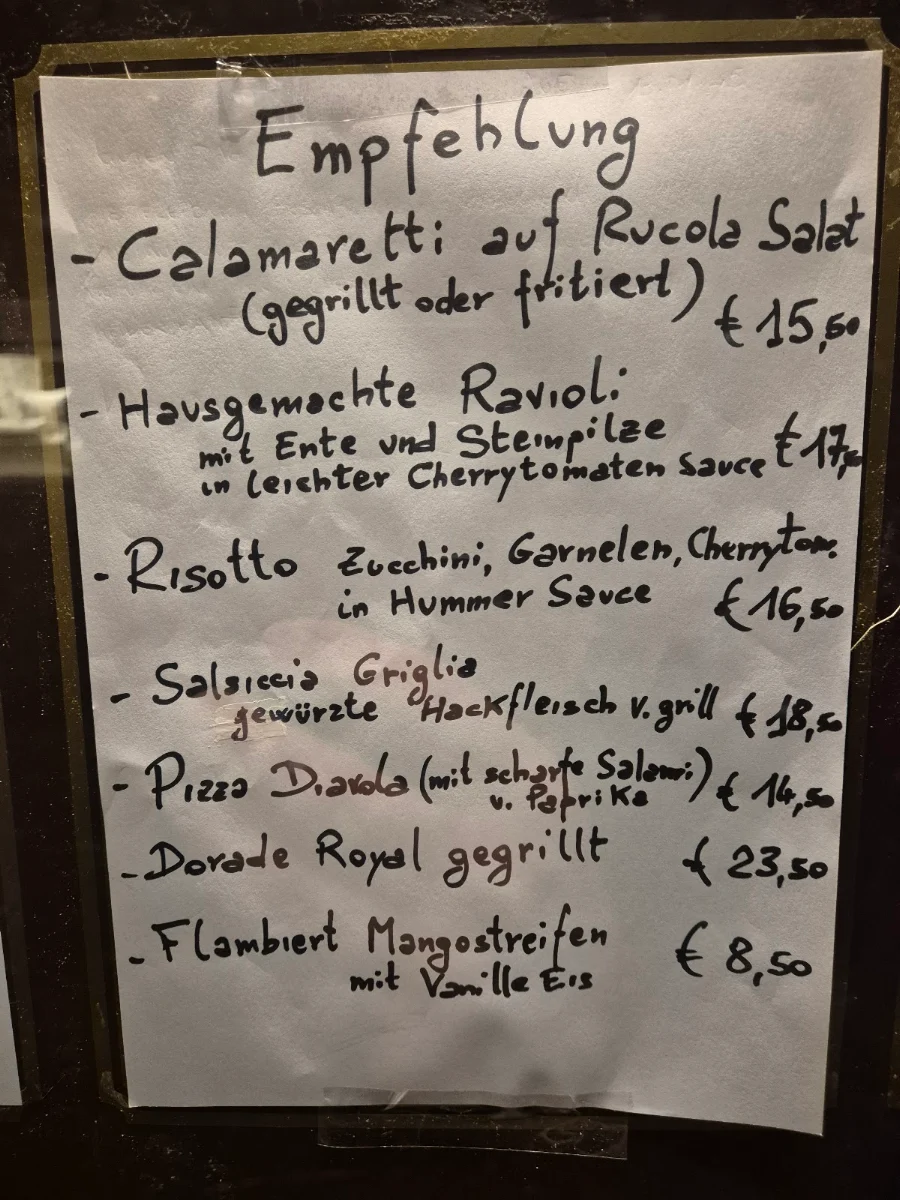 Empfehlung
- Calamaretti auf Rucola Salat
(gegrillt oder fritiert)
€ 15,50
- Hausgemachte Ravioli
mit Ente und Steinpilze
in leichter Cherrytomaten Sauce € 17,
- Risotto Zucchini, Garnelen, Cherrytom.
in Hummer Sauce € 16,50
- Salsiccia Griglia
gewürzte Hackfleisch v. grill € 18,50
- Pizza Diavola (mit scharfe Salami)
v. Paprika € 14,50
- Dorade Royal gegrillt € 23,50
- Flambiert Mangostreifen € 8,50
mit Vanille Eis